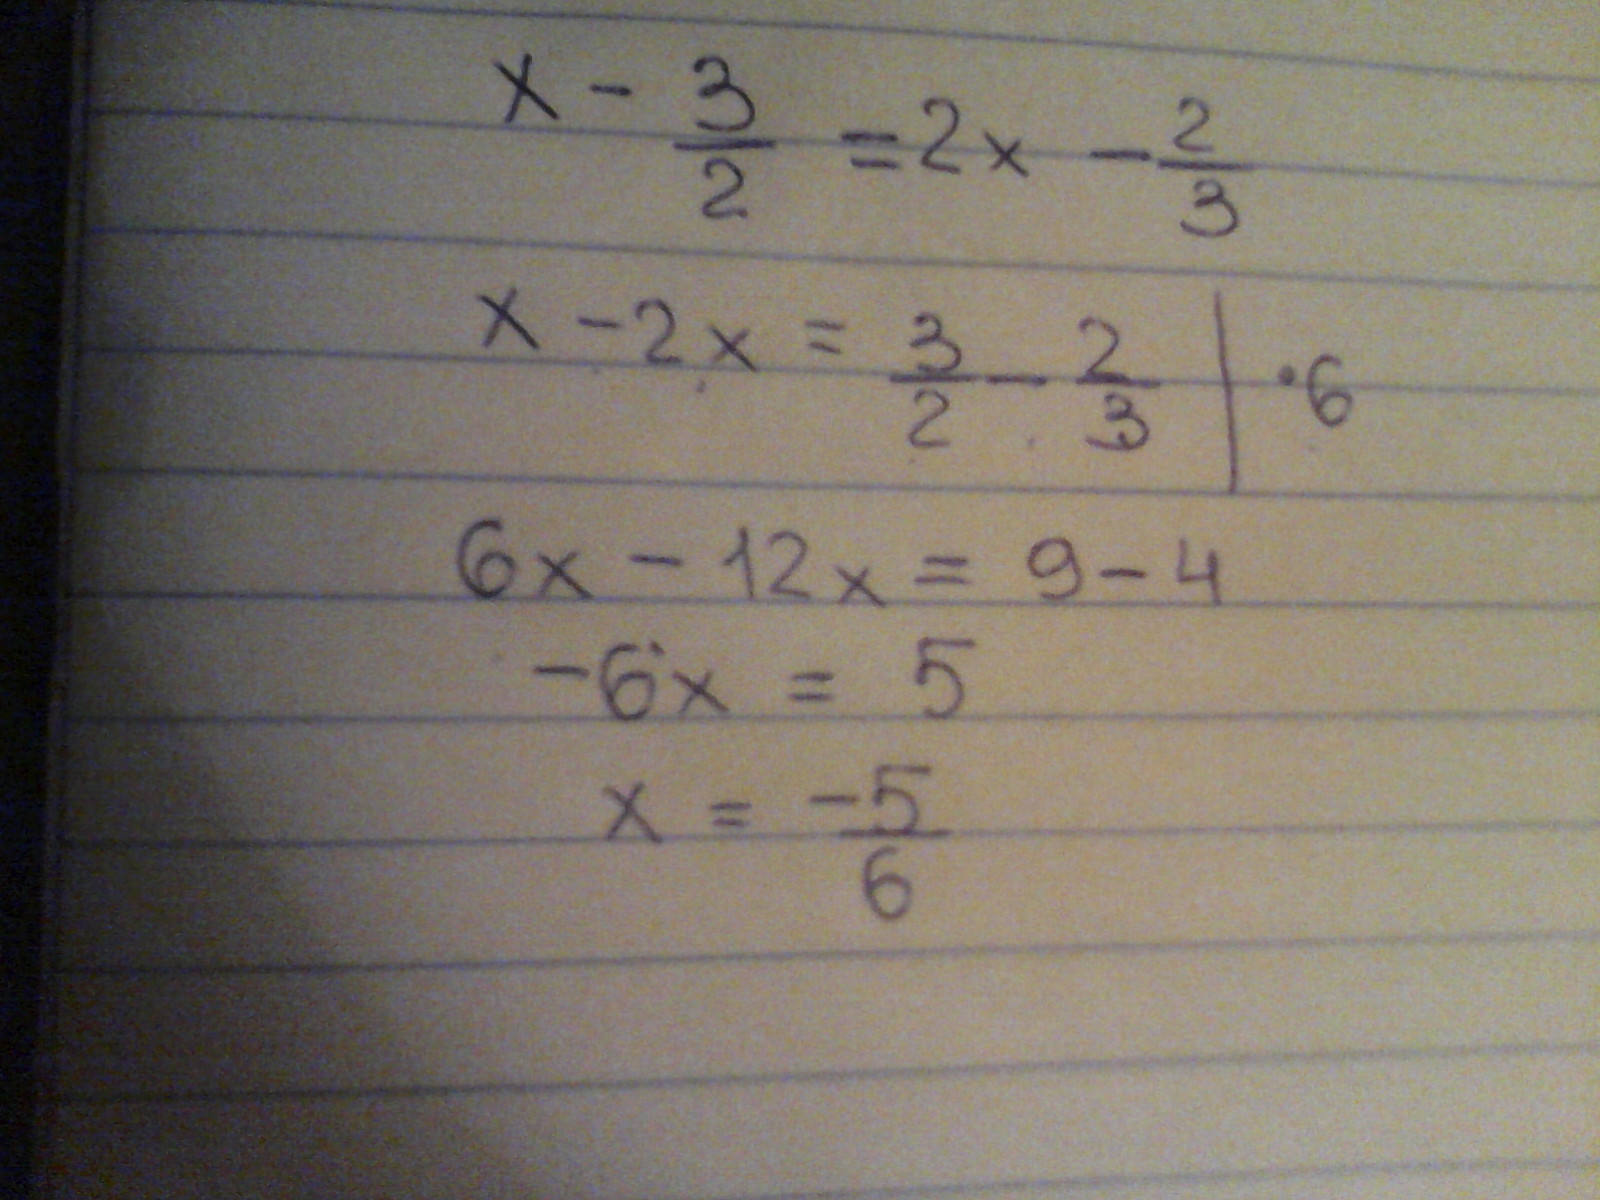 x - 3/2 = 2x - 2/3
x - 2x = 3/2 - 2/3 | · 6
6x - 12x = 9 - 4
-6x = 5
x = -5/6